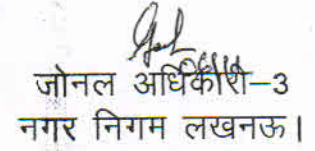 जोनल अधिकारी–3
नगर निगम लखनऊ।